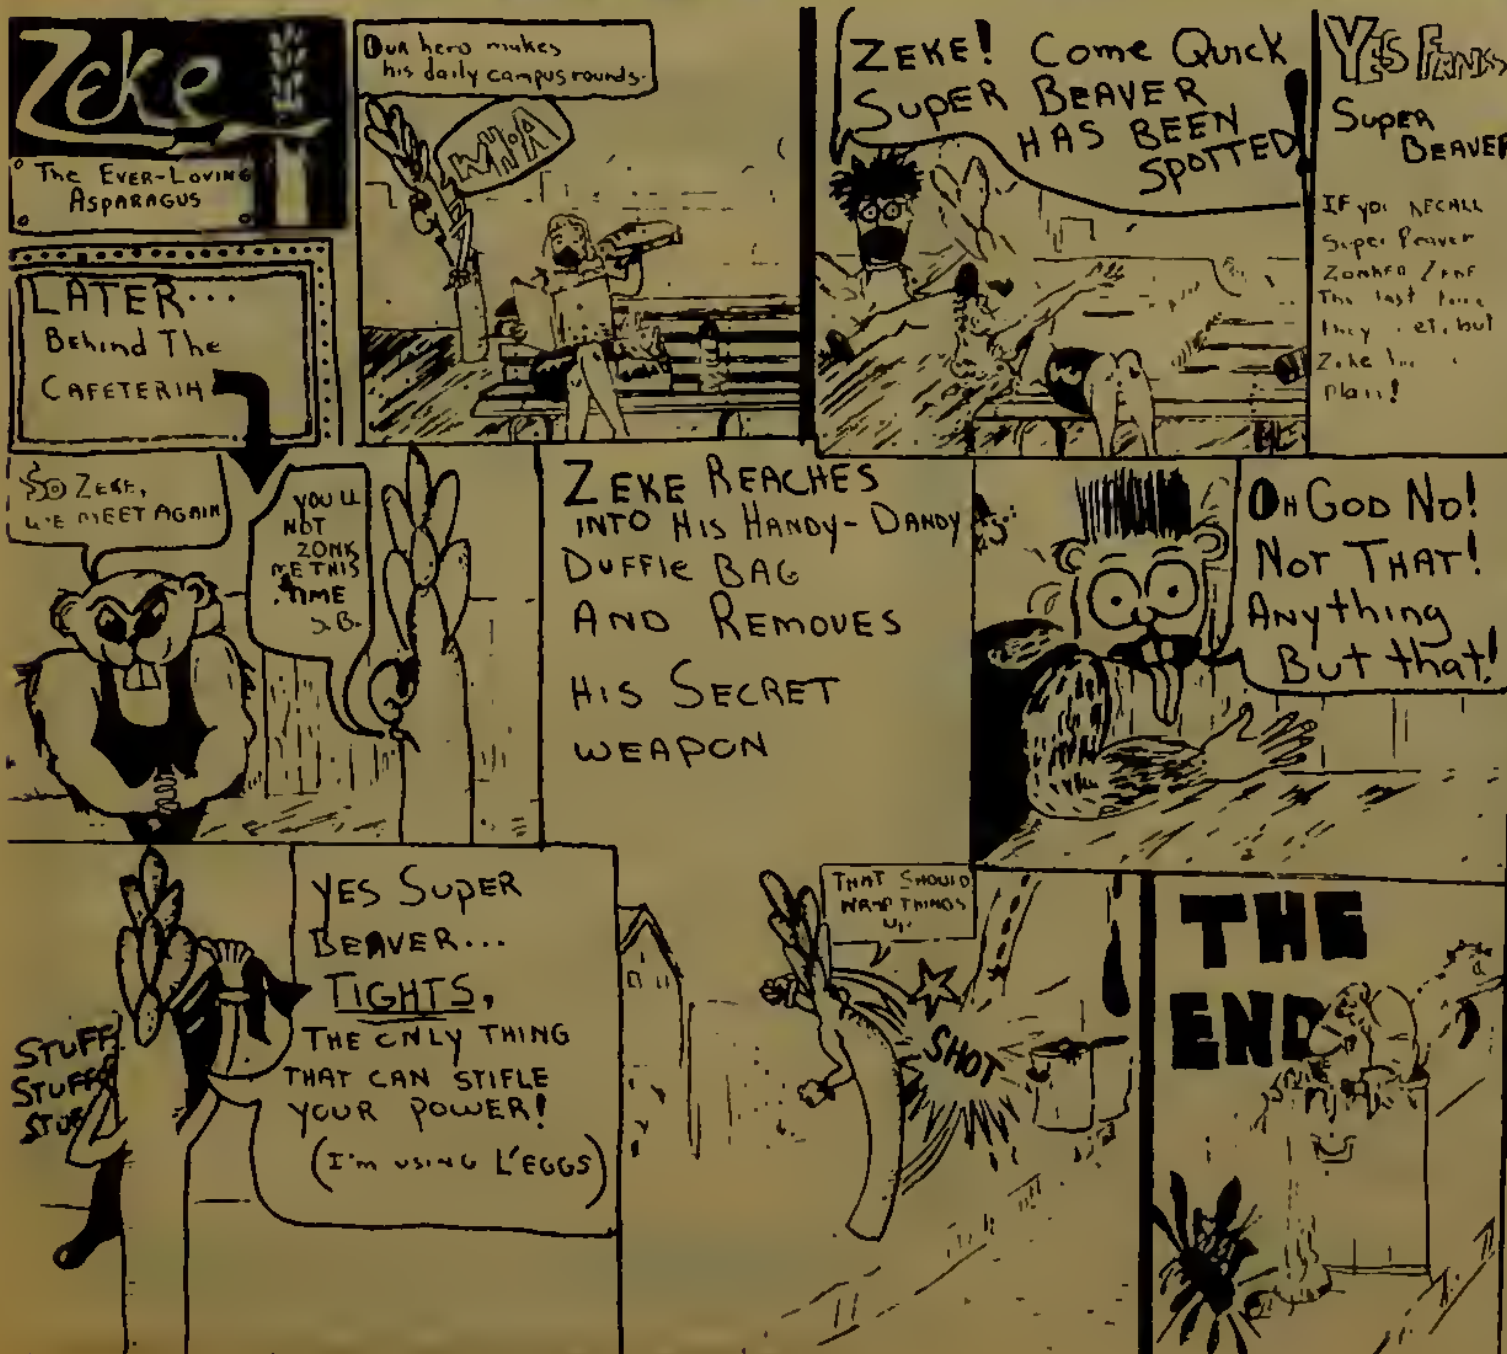 Zeke
The Ever-Loving
Asparagus
Our hero makes
his daily campus rounds.
ZEKE! Come Quick
SUPER BEAVER
HAS BEEN
SPOTTED!
YES FANS
SUPER
BEAVER
IF YOU RECALL
Super Beaver
ZONKED ZEKE
The last time
they but
Zeke
plan!
LATER...
Behind The
CAFETERIA
SO ZEKE,
WE MEET AGAIN
YOU'LL
NOT
ZONK
ME THIS
TIME
S.B.
ZEKE REACHES
INTO HIS HANDY-DANDY
DUFFIE BAG
AND REMOVES
HIS SECRET
WEAPON
OH GOD NO!
NOT THAT!
Anything
But that!
STUFF
STUFF
STUF
YES SUPER
BEAVER...
TIGHTS,
THE ONLY THING
THAT CAN STIFLE
YOUR POWER!
(I'm USING L'EGGS)
THAT SHOULD
WRAP THINGS
UP
SHOT
THE
END